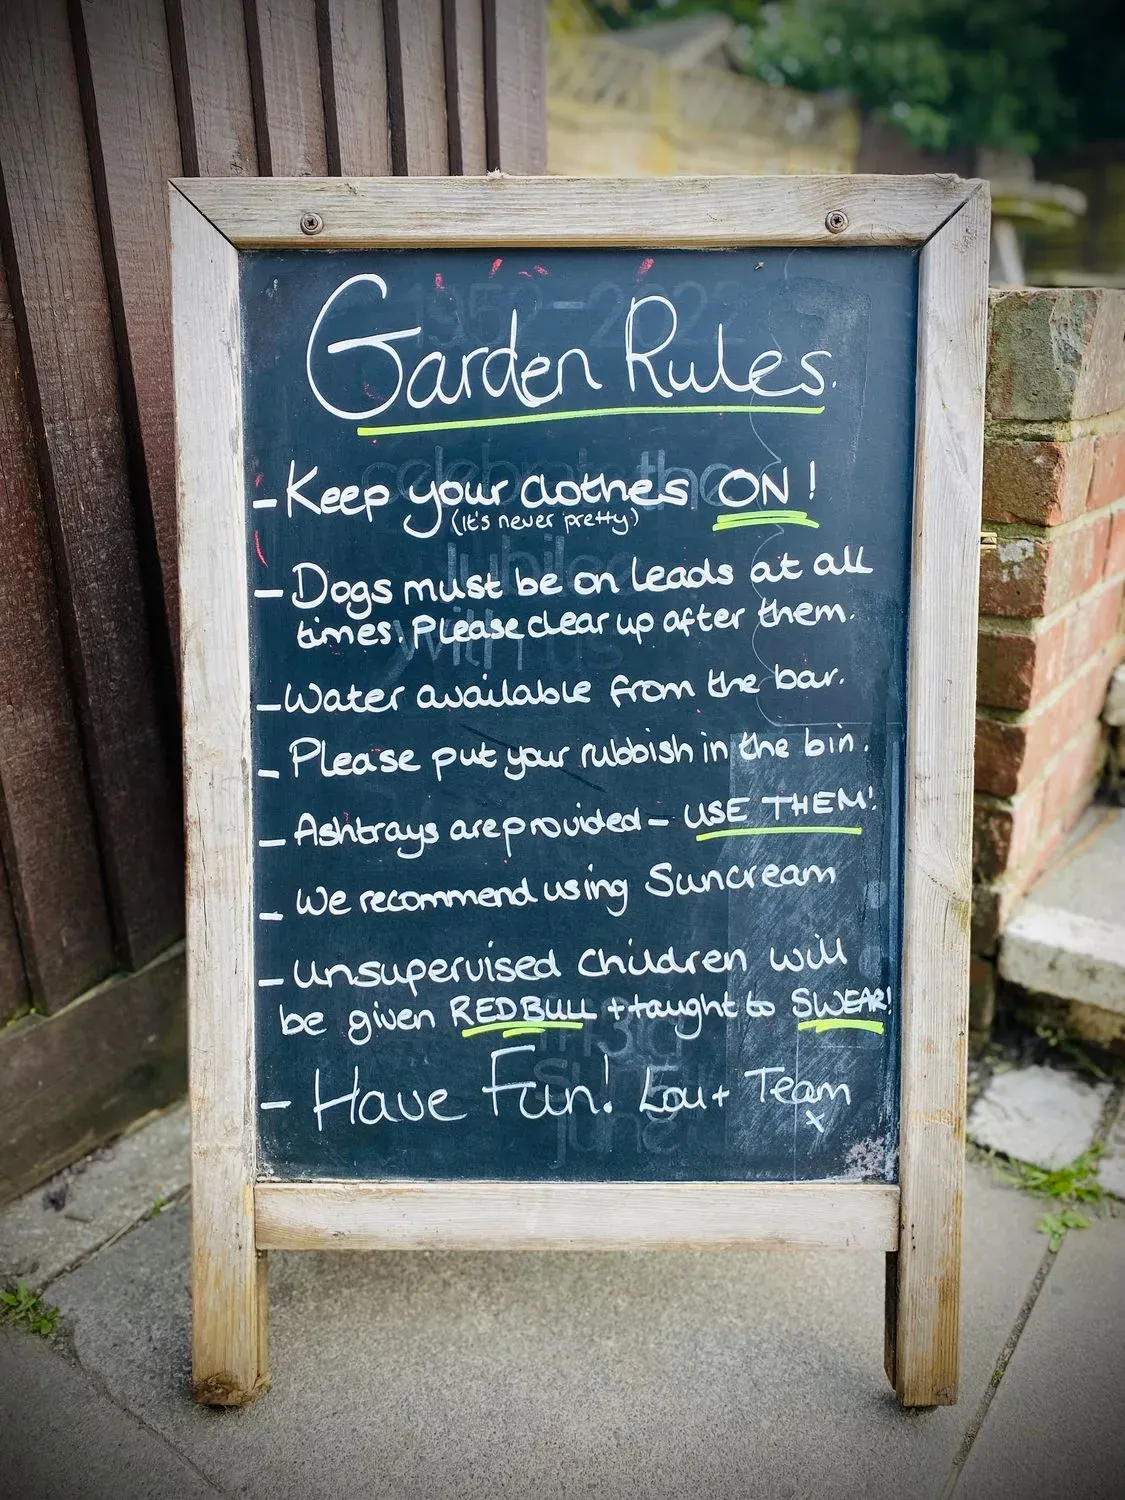 1952-2022
Garden Rules.
- Keep your clothes ON!
(it's never pretty)
- Dogs must be on leads at all
times. Please clear up after them.
- Water available from the bar.
- Please put your rubbish in the bin.
- Ashtrays are provided - USE THEM!
- We recommend using Suncream
- Unsupervised Children will
be given REDBULL + taught to SWEAR!
- Have Fun! Lou + Team
x